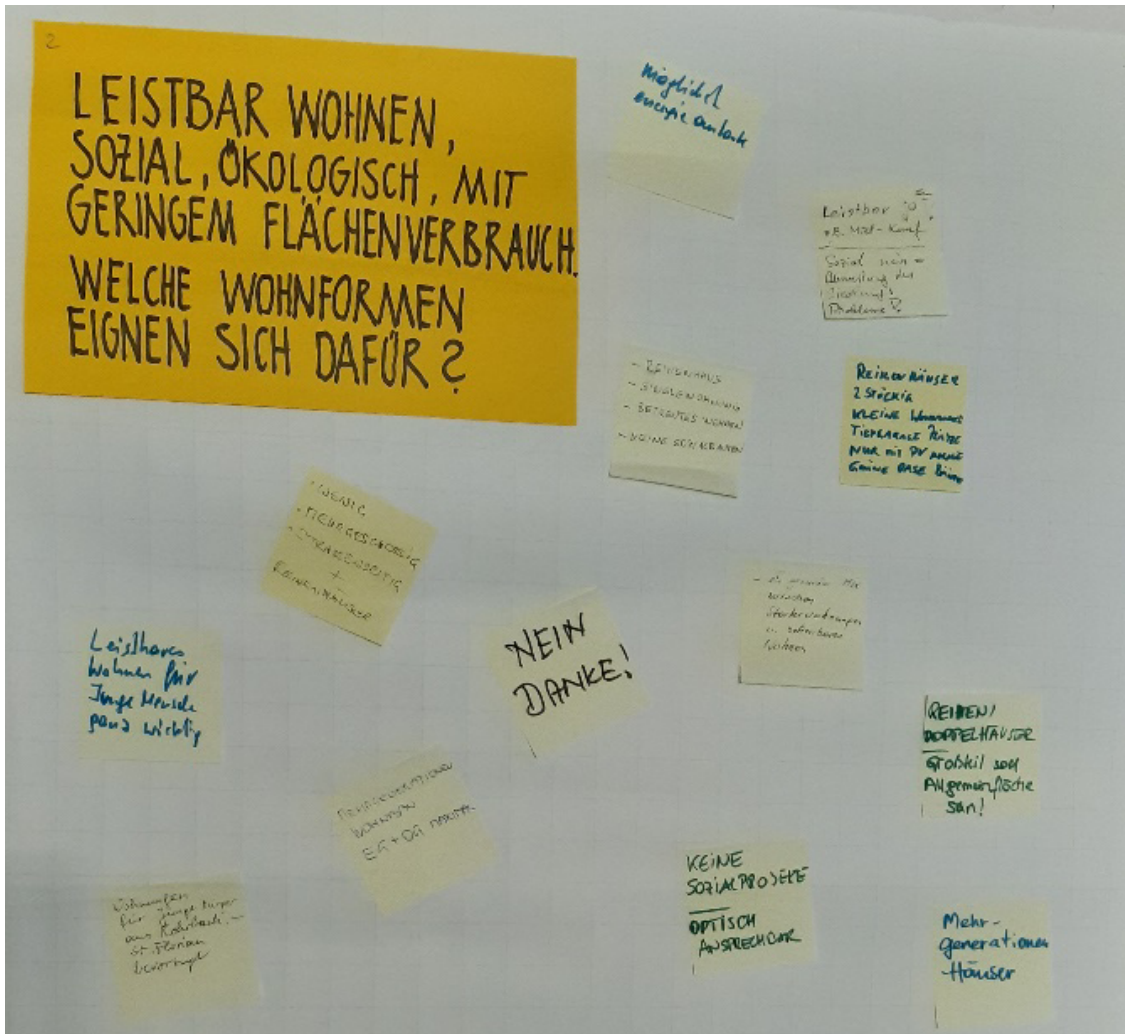 2
LEISTBAR WOHNEN,
SOZIAL, ÖKOLOGISCH, MIT
GERINGEM FLÄCHENVERBRAUCH.
WELCHE WOHNFORMEN
EIGNEN SICH DAFÜR?
möglichst
energieautark
Leistbar
z.B. Miet-Kauf
Sozial
Probleme
- REIHENHAUS
- BETREUTES WOHNEN
- KEINE
REIHENHÄUSER
2 STÖCKIG
KLEINE
NUR mit PV
GRÜNE OASE
- WENIG
- MEHRGESCHOSSIG
- STRASSENSEITIG
+
REIHENHÄUSER
zwischen
Starterwohnungen
u.
Wohnen
NEIN
DANKE!
Leistbares
Wohnen für
Junge Mensche
ganz wichtig
REIHEN/
DOPPELHÄUSER
Großteil soll
Allgemeinfläche
sein!
MEHRGENERATIONEN
WOHNBAU
EG + DG MAXIMAL
KEINE
SOZIALPROJEKTE
OPTISCH
ANSPRECHBAR
Wohnungen
für junge Bürger
aus Rohrbach -
St. Florian
bevorzugt
Mehr-
generationen
-Häuser